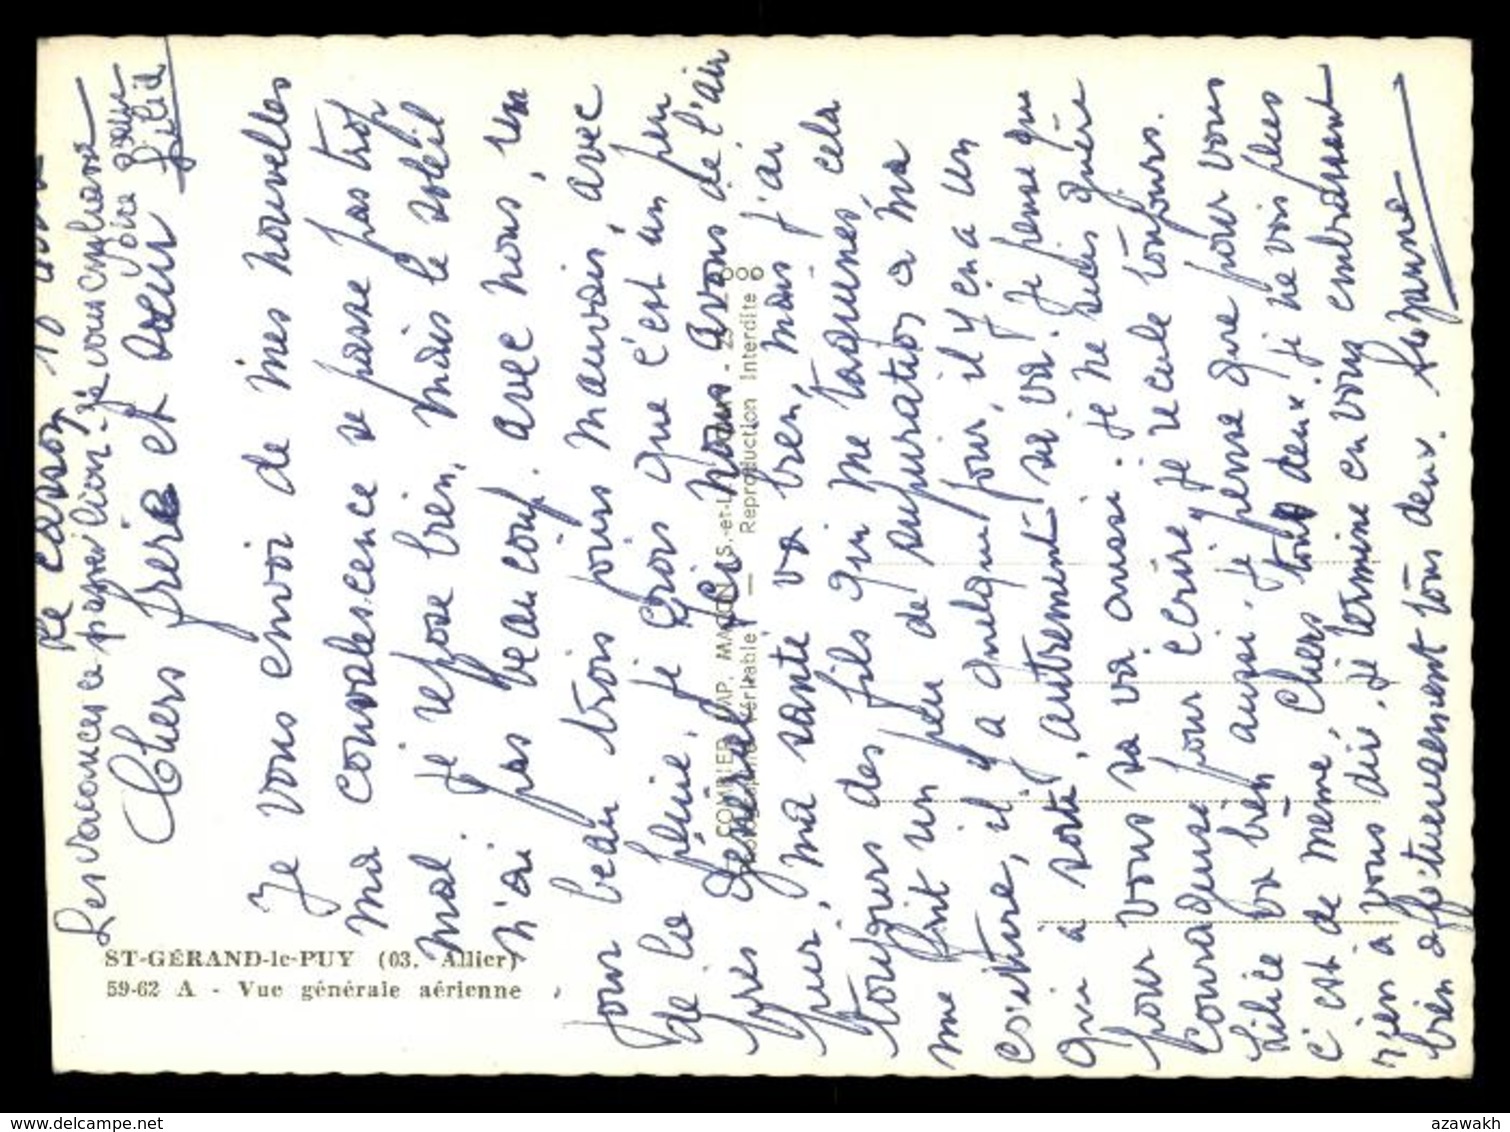 Le Casson 10 Août
Les vacances ce passer bien je vous embrasse
Chers frère et sœur
votre sœur Félicie
Je vous envoi de mes nouvelles
ma convalescence se passe pas trop
mal. Je repose bien, mais le soleil
n'ai pas beaucoup avec nous, un
jour beau trois jours mauvais, avec
de la pluie. Je crois que c'est un peu
près général. Ici nous avons de l'air
pur, ma santé va bien, mais j'ai
toujours des fils qui me taquines, cela
me finit un peu de supuration a ma
cicatrice, il y a quelque jour, il y en a un
qui a sorti, autrement sa va. Je pense que
pour vous sa va aussi. Je ne suis guère
courageuse pour écrire je recule toujours.
Félicie va bien aussi. Je pense que pour vous
c'est de même, Chers tous deux. Je ne vois plus
rien à vous dire, je termine en vous embrassant
bien affectueusement tous deux. Suzanne
ST-GÉRAND-le-PUY (03. Allier)
59-62 A - Vue générale aérienne
COMBIER IMP. MACON
Véritable — Reproduction Interdite
azawakh